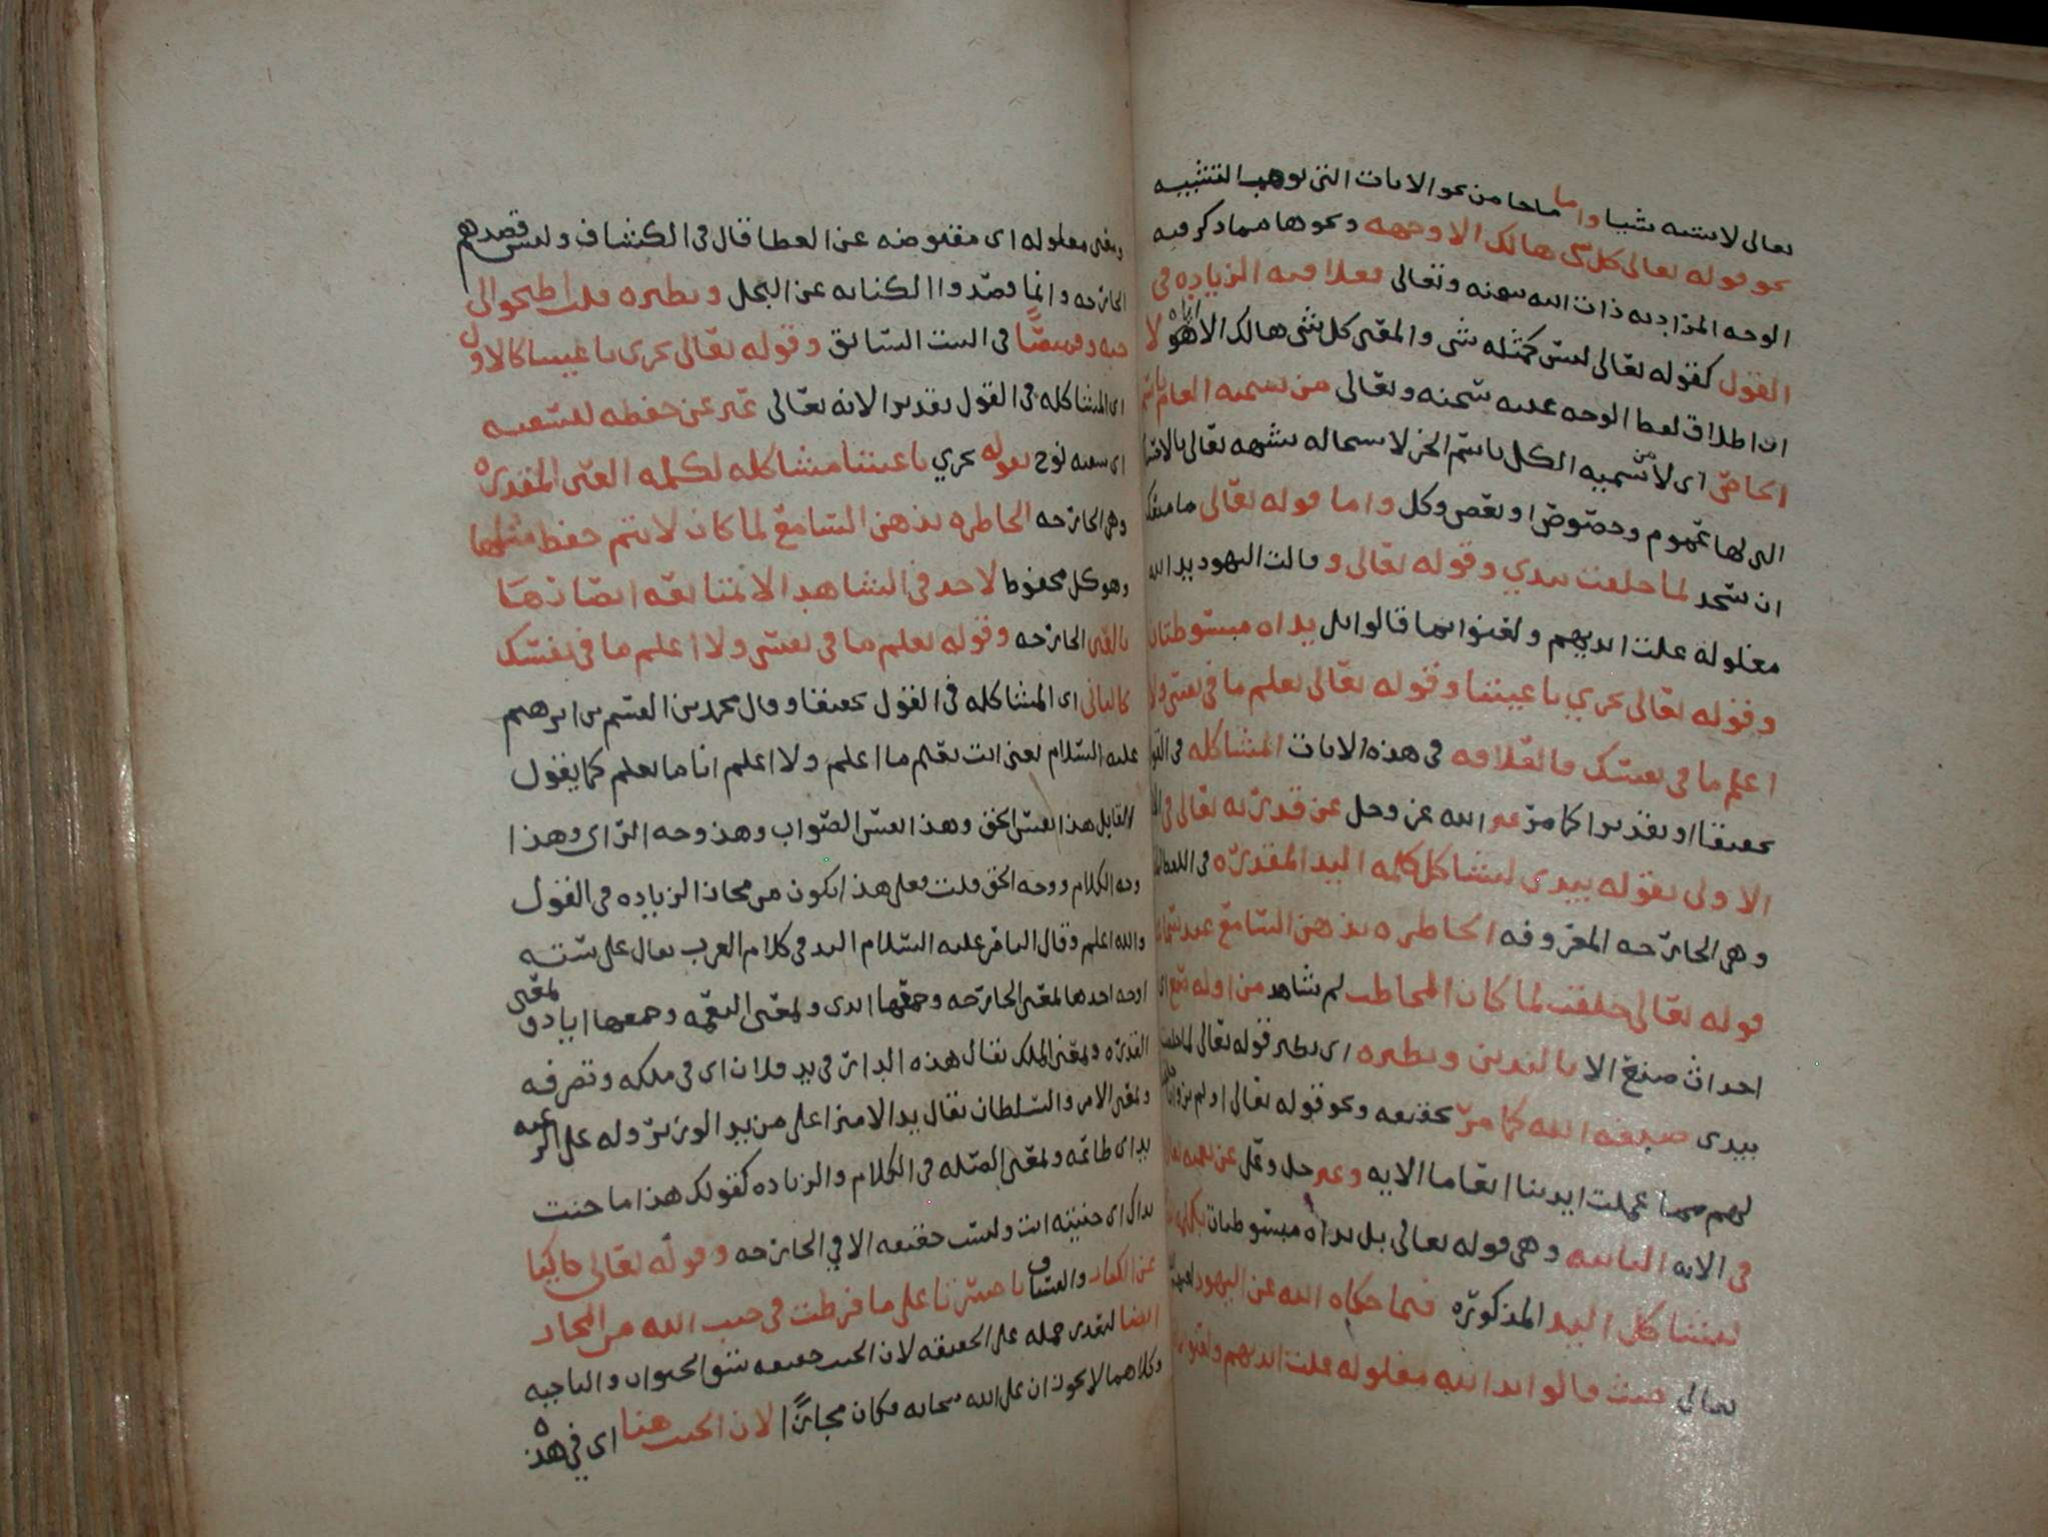 تعالى لا يشبه شيا واما ماجا من نحو الايات التي توهم التشبيه
نحو قوله تعالى كل شي هالك الا وجهه ونحوها مماذكر فيه
الوجه المراد به ذات الله سبحنه وتعالى فعلاقته الزياده في
القول كقوله تعالى ليس كمثله شي والمعنى كل شي هالك الا اياه هو لا
ان اطلاق لفظ الوجه عليه سبحنه وتعالى من تسميه العام باسم
الخاص اي لا من تسميه الكل باسم الجز لاستحاله شبهه تعالى بالاشيا
التي لها عموم وخصوص او بعض وكل واما قوله تعالى ما منعك
ان تسجد لما خلقت بيدي وقوله تعالى وقالت اليهود يد الله
مغلولة غلت ايديهم ولعنوا بما قالوا بل يداه مبسوطتان
وقوله تعالى تجري باعيننا وقوله تعالى تعلم ما في نفسي ولا
اعلم ما في نفسك فالعلاقه في هذه الايات المشاكله في القول
تحقيقا او تقديرا كما مر عبر الله عز وجل عن قدرته تعالى في
الاولى بقوله بيدي ليشاكل كلمه اليد المقدره في اللفظ
وهي الجارحه المعروفه الخاطره بذهن السامع عند سماع
قوله تعالى خلقت لما كان المخاطب لم يشاهد من اوله
احداث صنع الا باليدين ونظيره اي نظير قوله تعالى لما خلقت
بيدي صبغه الله كما مر تحقيقه ونحو قوله تعالى اولم يروا انا خلقنا
لهم مما عملت ايدينا انعاما الايه وعبر جل وعلا عن نعمه تعالى
في الايه الثانيه وهي قوله تعالى بل يداه مبسوطتان بكلمه
ليشاكل اليد المذكوره فيما حكاه الله عن اليهود لعنهم
تعالى حيث قالوا يد الله مغلوله غلت ايديهم ولعنوا بما
ومعنى مغلوله اي مقبوضه عن العطا قال في الكشاف وليس قصدهم
الجارحه وانما قصدوا الكنايه عن البخل ونظيره قلت اطبخوا لي
جبه وقميصًا في البيت السابق وقوله تعالى تجري باعيننا كالاول
اي المشاكله في القول تقديرا لانه تعالى عبر عن حفظه لسفينه
اي سفينه نوح بقوله تجري باعيننا مشاكله لكلمه العين المقدره
وهي الجارحه الخاطره بذهن السامع لما كان لا يتم حفظ مثلها
وهو كل محفوظ لاحد في الشاهد الا بمتابعه ابصارها
بالعين الجارحه وقوله تعلم ما في نفسي ولا اعلم ما في نفسك
كالثاني اي المشاكله في القول تحقيقا وقال محمد بن القسم بن ابرهيم
عليه السلام يعني انت تعلم ما اعلم ولا اعلم انا ما تعلم كما يقول
القايل هذا نفس الحق وهذا نفس الصواب وهذا وجه الراي وهذا
وجه الكلام ووجه الحق قلت فعلى هذا يكون من مجاز الزياده في القول
والله اعلم وقال الباقر عليه السلام اليد في كلام العرب تقال على ستة
اوجه احدها لمعنى الجارحه وجمعها ايدي ولمعنى النعمه وجمعها ايادي ولمعنى
القدره ولمعنى الملك يقال هذه الدار في يد فلان اي في ملكه وتصرفه
ولمعنى الامر والسلطان يقال يد الامير اعلى من يد الوزير وله على الرعيه
يد اي طاعه ولمعنى الصله في الكلام والزياده كقولك هذا ما جنت
يداك اي جنيته انت وليست حقيقه الا في الجارحه وقوله تعالى حاكيا
عن الكفار والفساق يا حسرتا على ما فرطت في جنب الله من المجاز
ايضا لتعذر حمله على الحقيقه لان الجنب حقيقه شق الحيوان والناحيه
وكلاهما لا يجوزان على الله سبحانه فكان مجازًا لان الجنب هنا اي في هذه